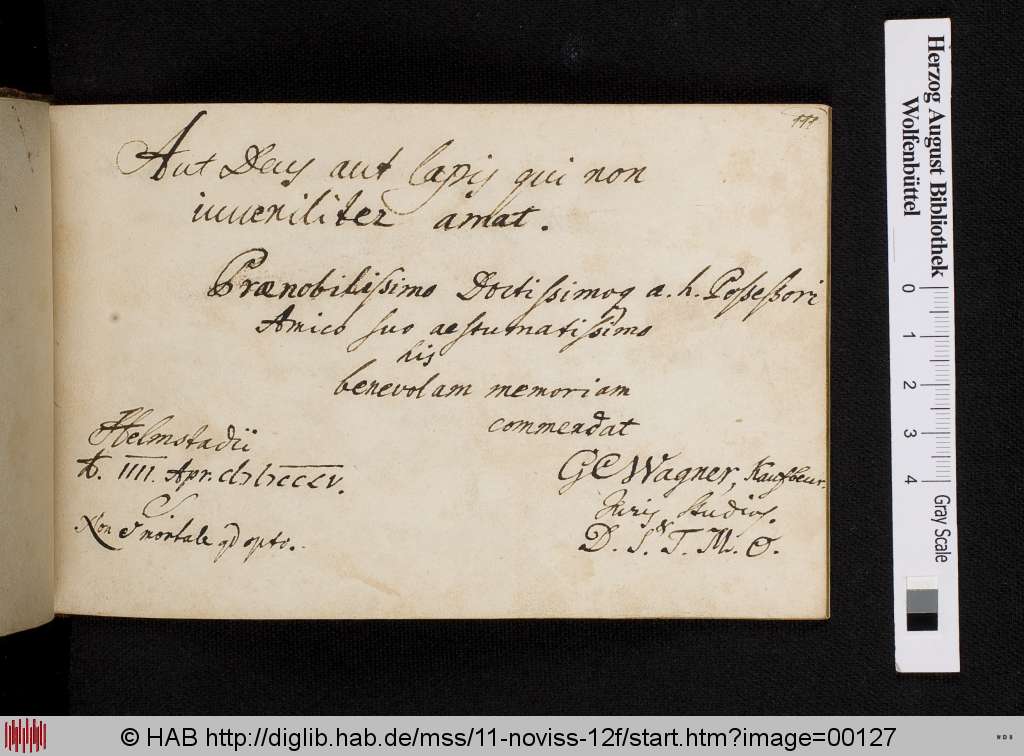 111
Aut Deus aut lapis qui non
iuveniliter amat.
Prænobilissimo Doctissimoq a. h. Possessori
Amico suo aestumatissimo
his
benevolam memoriam
commendat
Helmstadii
IIII. Apr.
GCWagner, Kaufbeur.
Juris studios.
D. S. & T. M. O.
Non mortale qd opto.
Herzog August Bibliothek
Wolfenbüttel
0 1 2 3 4
Gray Scale
© HAB http://diglib.hab.de/mss/11-noviss-12f/start.htm?image=00127
WDB